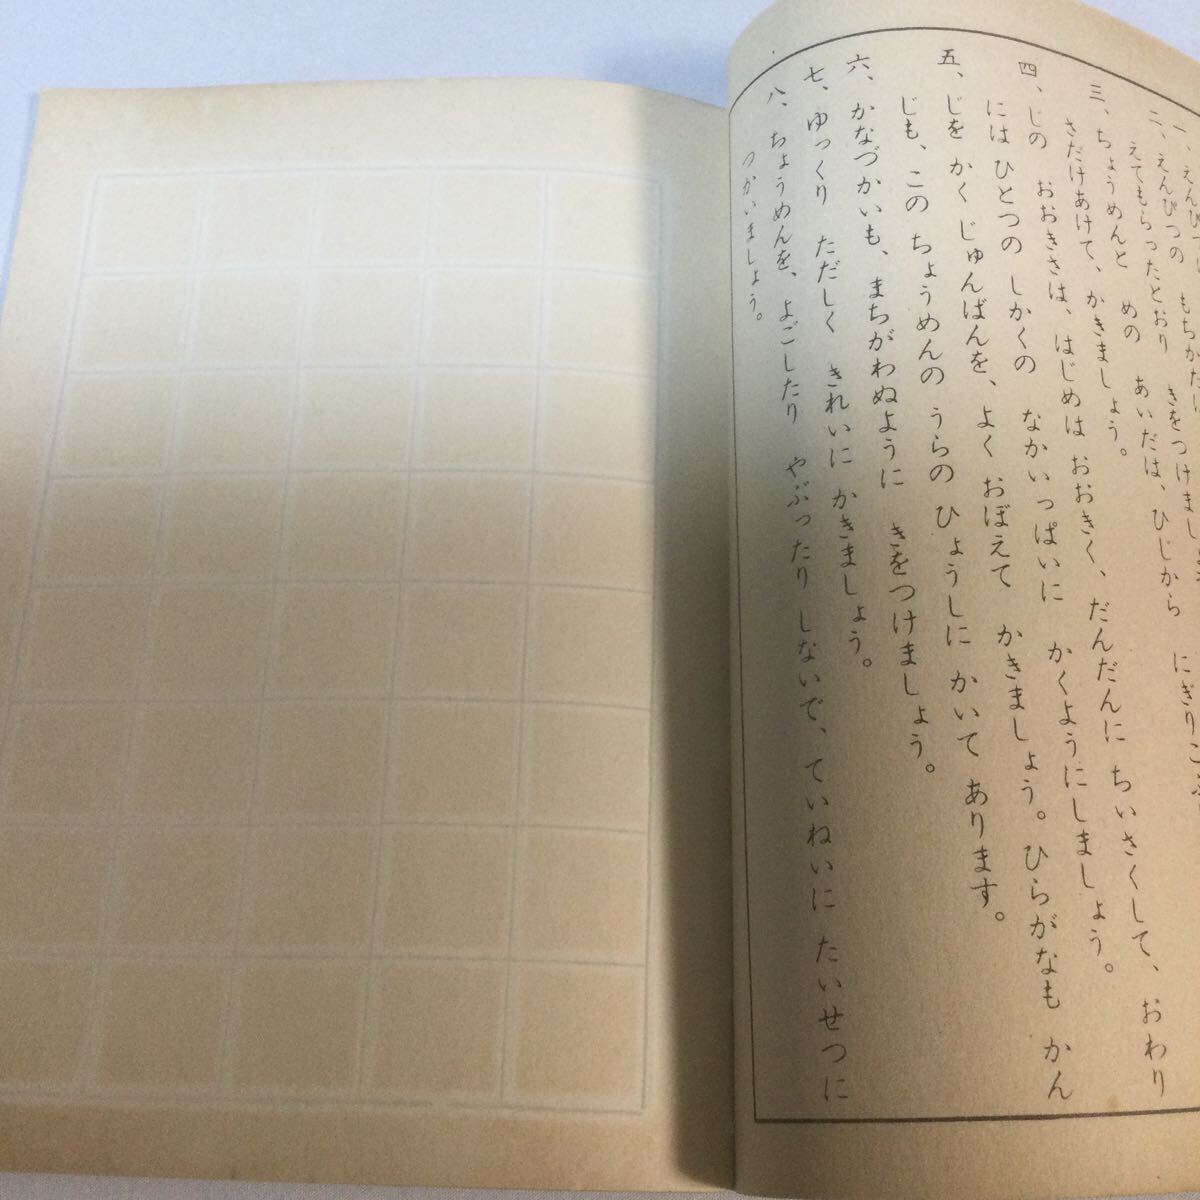 一、えんぴつ
二、えんぴつの もちかたに きをつけましょ
えてもらったとおり きをつけ にぎりこぶ
三、ちょうめんと めの あいだは、ひじから
さだけあけて、かきましょう。
四、じの おおきさは、はじめは おおきく、だんだんに ちいさくして、おわり
には ひとつの しかくの なかいっぱいに かくようにしましょう。
五、じを かくじゅんばんを、よく おぼえて かきましょう。ひらがなも かん
じも、この ちょうめんの うらの ひょうしに かいて あります。
六、かなづかいも、まちがわぬように きをつけましょう。
七、ゆっくり ただしく きれいに かきましょう。
八、ちょうめんを、よごしたり やぶったり しないで、ていねいに たいせつに
つかいましょう。